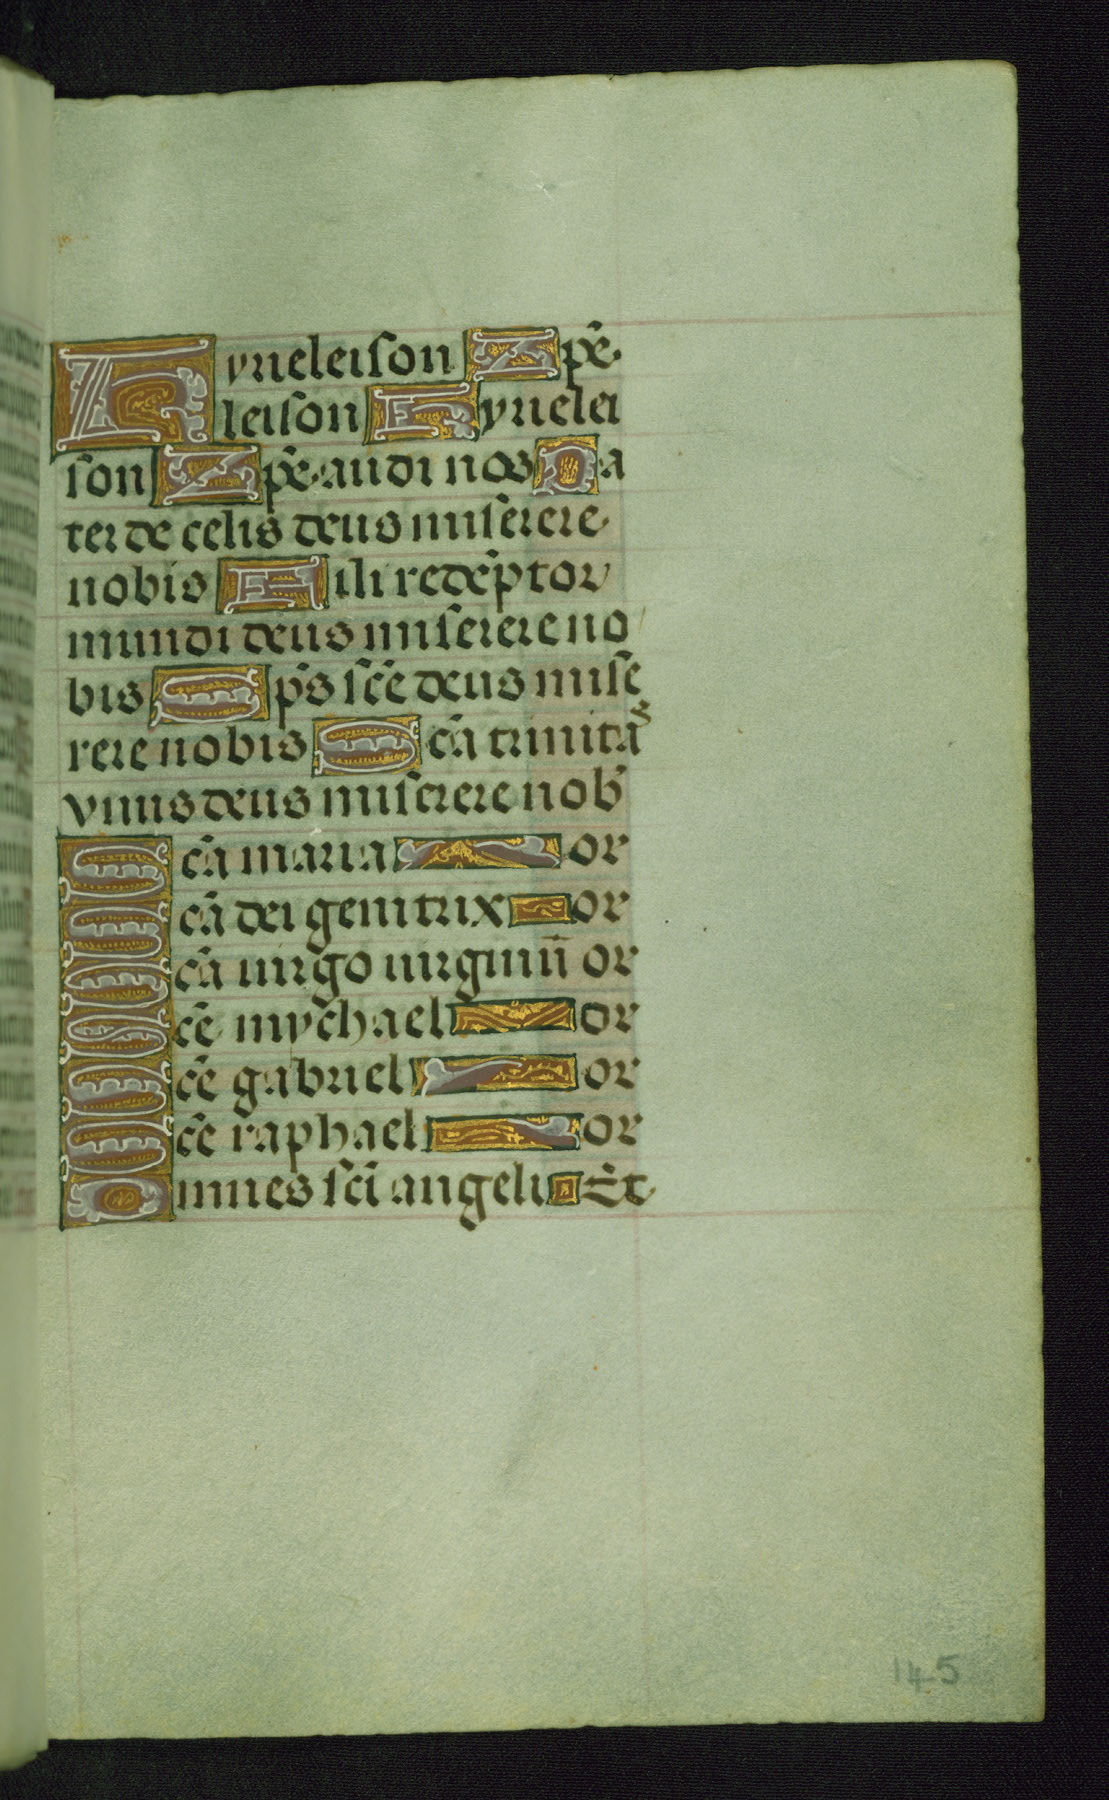 Kyrieleison Xp̄e
leison Kyrielei
son Xp̄e audi nos Pa
ter de celis deus miserere
nobis Fili redẽptor
mundi deus miserere no
bis Sp̄s sc̄e deus mise
rere nobis Sc̄a trinitas
vnus deus miserere nob̄
Sc̄a maria or
Sc̄a dei genitrix or
Sc̄a uirgo uirginū or
Sc̄e mychael or
Sc̄e gabriel or
Sc̄e raphael or
Omnes sc̄i angeli Et
145